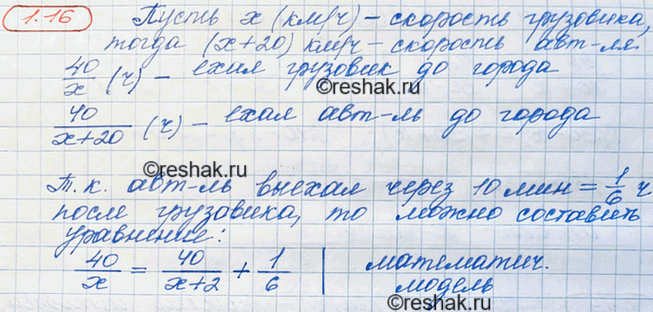 1.16 Пусть x (км/ч) – скорость грузовика,
тогда (x+20) км/ч – скорость авт-ля.
40/x (ч) – ехал грузовик до города
©reshak.ru
40/(x+20) (ч) – ехал авт-ль до города
©reshak.ru
Т.к. авт-ль выехал через 10 мин = 1/6 ч
после грузовика, то можно составить
уравнение:
40/x = 40/(x+2) + 1/6 | математич.
модель
©reshak.ru